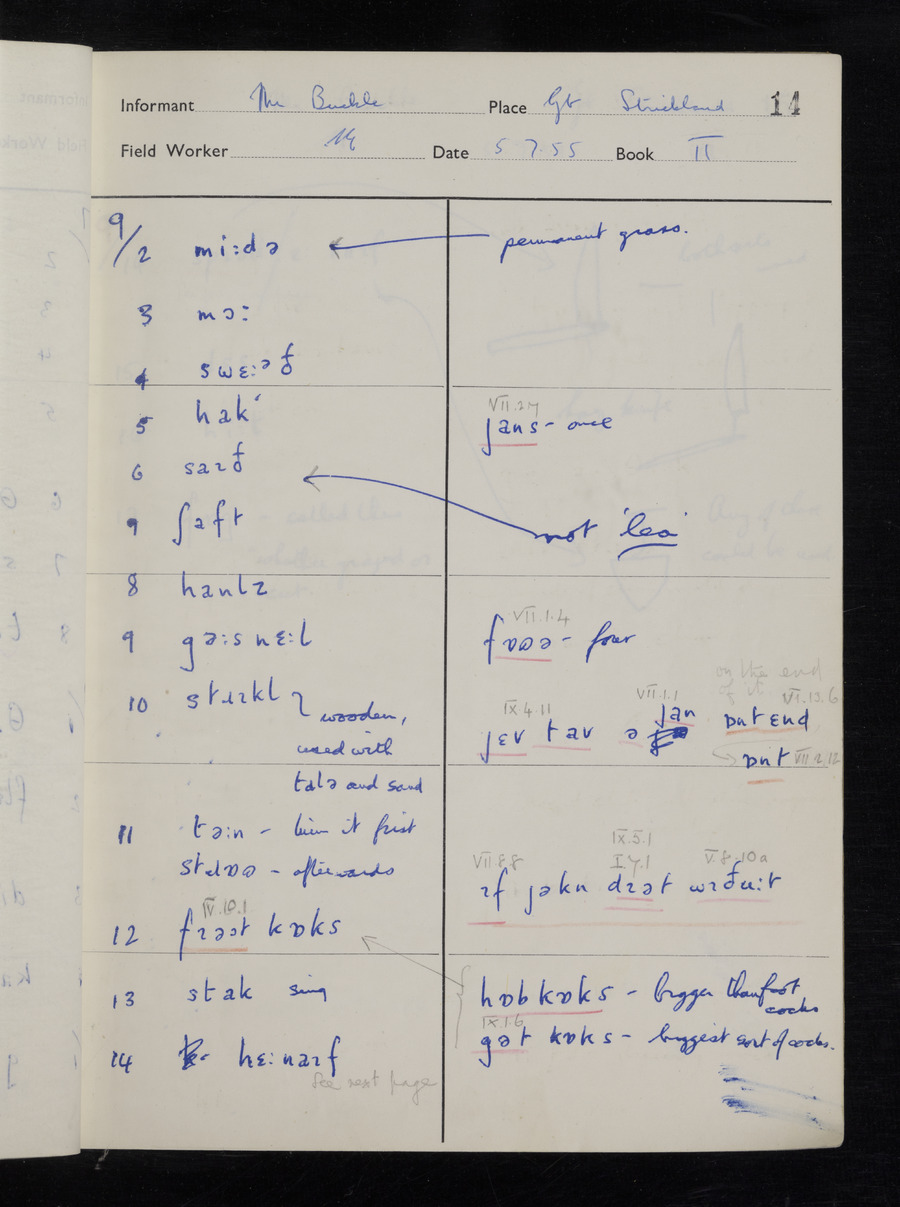 Informant Mr Buckle Place Gt Strickland 14
Field Worker Date 5 7.55 Book II
9/2 mi:də permanent grass.
3 mɔ:
4 swɛ:əð
5 hak'
VII.2.7
jans - once
6 saɪð
not 'lea'
7 ʃaft
8 hanlz
VII.1.4
9 gə:snɛ:l fʊʊə - four
on the end
of it VI.13.6
IX.4.11 VII.1.1
10 stɪɪkl wooden, jɛv tav ə jan ɒnt ɛnd
used with ɒnt VII.2.12
and sand
11 tə:n - turn it first
- afterwards
IX.5.1
VII.8.8 I.7.1 V.8.10a
ɪf jəkn dɪət wɪðu:t
IV.10.1
12 kɒks
13 stak sing hɒbkɒks - bigger than foot
cocks
IX.1.6
gət kɒks - biggest sort of cocks.
14 hɛ:naɪf
See next page